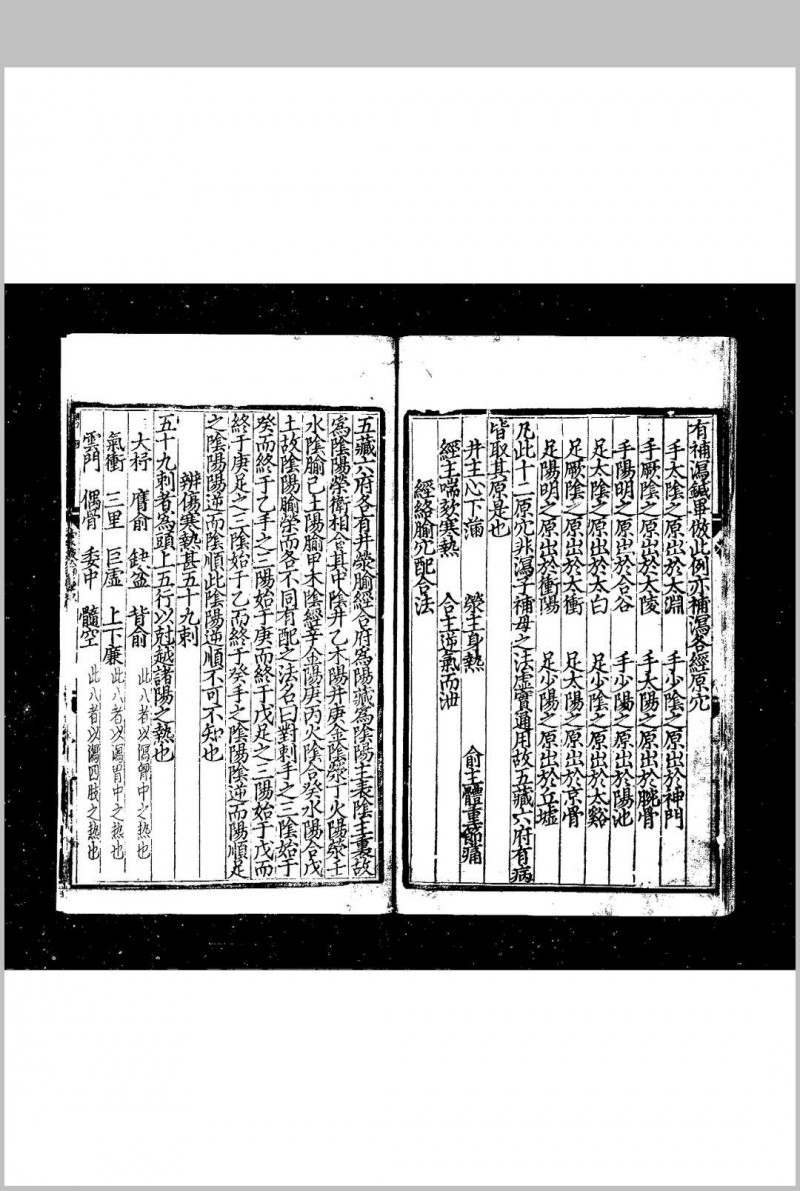 有補瀉鍼畢倣此例亦補瀉各經原穴
手太陰之原出於太淵　手少陰之原出於神門
手厥陰之原出於大陵　手太陽之原出於腕骨
手陽明之原出於合谷　手少陽之原出於陽池
足太陰之原出於太白　足少陰之原出於太谿
足厥陰之原出於太衝　足太陽之原出於京骨
足陽明之原出於衝陽　足少陽之原出於丘墟
凡此十二原穴非瀉子補母之法虛實通用故五藏六府有病
皆取其原是也
井主心下滿　滎主身熱　俞主體重節痛
經主喘欬寒熱　合主逆氣而泄
經絡腧穴配合法
五藏六府各有井滎腧經合府爲陽藏爲陰陽主表陰主裏故
爲陰陽榮衛相合其中陰井乙木陽井庚金陰滎丁火陽滎壬
水陰腧己土陽腧甲木陰經辛金陽庚丙火陰合癸水陽合戊
土故陰陽腧滎而各不同有配之法名曰對刺手之三陰始于
癸而終于乙手之三陽始于庚而終于戊足之三陽始于戊而
終于庚足之三陰始于乙而終于癸手之陰陽陰逆而陽順足
之陰陽陽逆而陰順此陰陽逆順不可不知也
辨傷寒熱甚五十九刺
五十九刺者爲頭上五行以尅越諸陽之熱也
大杼　膺俞　缺盆　背俞　此八者以瀉胷中之熱也
氣衝　三里　巨虛　上下廉　此八者以瀉胃中之熱也
雲門　偶骨　委中　髓空　此八者以瀉四肢之熱也